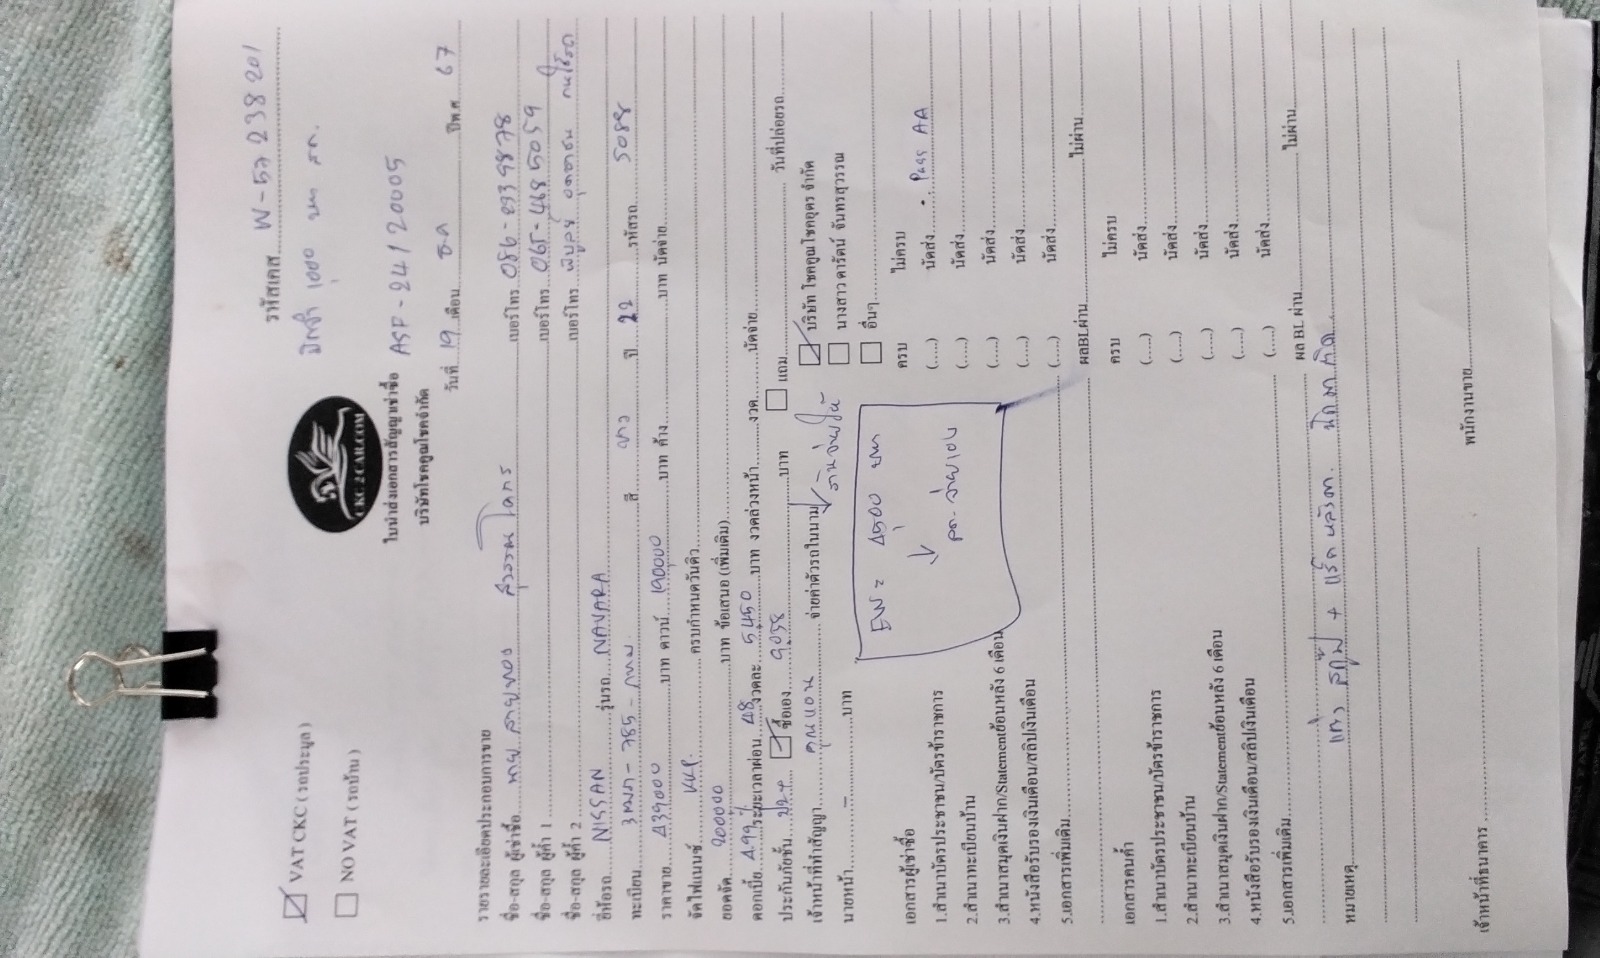 รหัสเคส W-57 238 201
1000 บาท
CKC 2 CAR.COM
☑ VAT CKC ( รถประมูล )
☐ NO VAT ( รถบ้าน )
ใบนำส่งเอกสารสัญญาเช่าซื้อ ASP-24120005
บริษัทโชคคูณโชคจำกัด
วันที่ 19 เดือน ธ.ค ปีพ.ศ 67
รายรายละเอียดประกอบการขาย
ชื่อ-สกุล ผู้เช่าซื้อ นาย สายทอง สุวรรณโคตร เบอร์โทร 086-2939878
ชื่อ-สกุล ผู้ค้ำ 1 เบอร์โทร 065-4685059
ชื่อ-สกุล ผู้ค้ำ 2 เบอร์โทร
ยี่ห้อรถ NISSAN รุ่นรถ NAVARA
ทะเบียน 3ฒฌ-785-กทม. สี ขาว ปี 22 รหัสรถ 5088
ราคาขาย 439000 บาท ดาวน์ 190000 บาท ค้าง บาท นัดจ่าย
จัดไฟแนนซ์ KKP. ครบกำหนดวันคิว
ยอดจัด 200000 บาท ข้อเสนอ (เพิ่มเติม)
ดอกเบี้ย 4.99% ระยะเวลาผ่อน 48 งวดละ 5450 บาท งวดล่วงหน้า งวด นัดจ่าย
ประกันภัยชั้น ป2+ ☑ ซื้อเอง 9,058 บาท ☐ แถม วันที่ปล่อยรถ
เจ้าหน้าที่ทำสัญญา คุณแอน จ่ายค่าตัวรถในนาม ☑ บริษัท โชคคูณโชคอุดร จำกัด
นายหน้า - บาท ☐ นางสาว ดารัตน์ จันทรสุวรรณ
☐ อื่นๆ
EW = 4500 บาท
↓
ลค. จ่ายเอง
เอกสารผู้เช่าซื้อ ครบ ไม่ครบ
1.สำเนาบัตรประชาชน/บัตรข้าราชการ (.....) นัดส่ง Pass AA
2.สำเนาทะเบียนบ้าน (.....) นัดส่ง
3.สำเนาสมุดเงินฝาก/Statementย้อนหลัง 6 เดือน (.....) นัดส่ง
4.หนังสือรับรองเงินเดือน/สลิปเงินเดือน (.....) นัดส่ง
5.เอกสารเพิ่มเติม (.....) นัดส่ง
ผลBLผ่าน ไม่ผ่าน
เอกสารคนค้ำ ครบ ไม่ครบ
1.สำเนาบัตรประชาชน/บัตรข้าราชการ (.....) นัดส่ง
2.สำเนาทะเบียนบ้าน (.....) นัดส่ง
3.สำเนาสมุดเงินฝาก/Statementย้อนหลัง 6 เดือน (.....) นัดส่ง
4.หนังสือรับรองเงินเดือน/สลิปเงินเดือน (.....) นัดส่ง
5.เอกสารเพิ่มเติม (.....) นัดส่ง
ผล BL ผ่าน ไม่ผ่าน
หมายเหตุ + แร็คหลังคา.
เจ้าหน้าที่ธนาคาร พนักงานขาย